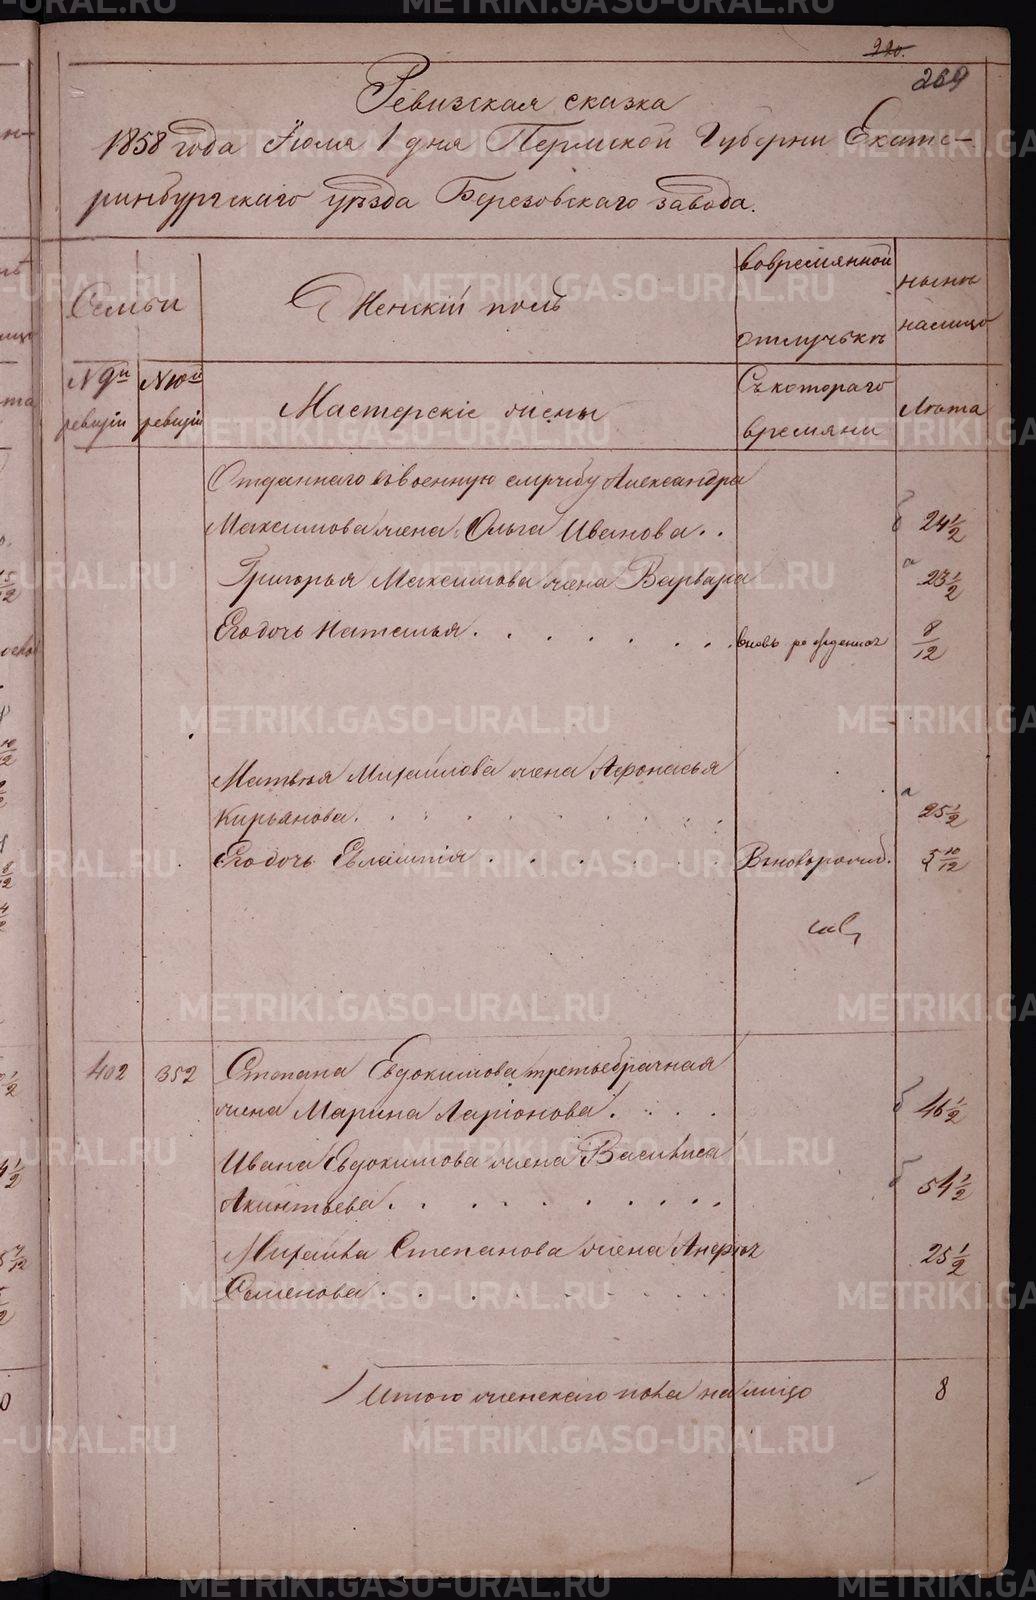 220.
269
Ревизская сказка
1858 года Июля 1 дня Пермской Губернии Екате-
ринбургскаго уѣзда Березовскаго завода.
Семьи
Женскій полъ
вовремянной
отлучькѣ
нынѣ
налицо
№ 9й
ревизіи
№ 10й
ревизіи
Мастерскіе жены
Съ котораго
времяни
Лѣта
Отданнаго въ военную службу Александра
Максимова жена Ольга Иванова . . б 24 1/2
Григорья Максимова жена Варвара а 23 1/2
Его дочь Наталья . . . . . . . . вновь рожденная 8/12
Матвѣя Михайлова жена Афонасья
Кирьянова . . . . . . . . . а 25 1/2
Его дочь Евлампія . . . . . . . Вновьрожд. 5 10/12
402 352 Степана Евдокимова третьебрачная
жена Марина Ларіонова . . . . б 46 1/2
Ивана Евдокимова жена Василиса
Акинтьева . . . . . . . . . б 54 1/2
Михайла Степанова жена
Семенова . . . . . . . . . 25 1/2
Итого женскаго пола налицо 8
METRIKI.GASO-URAL.RU